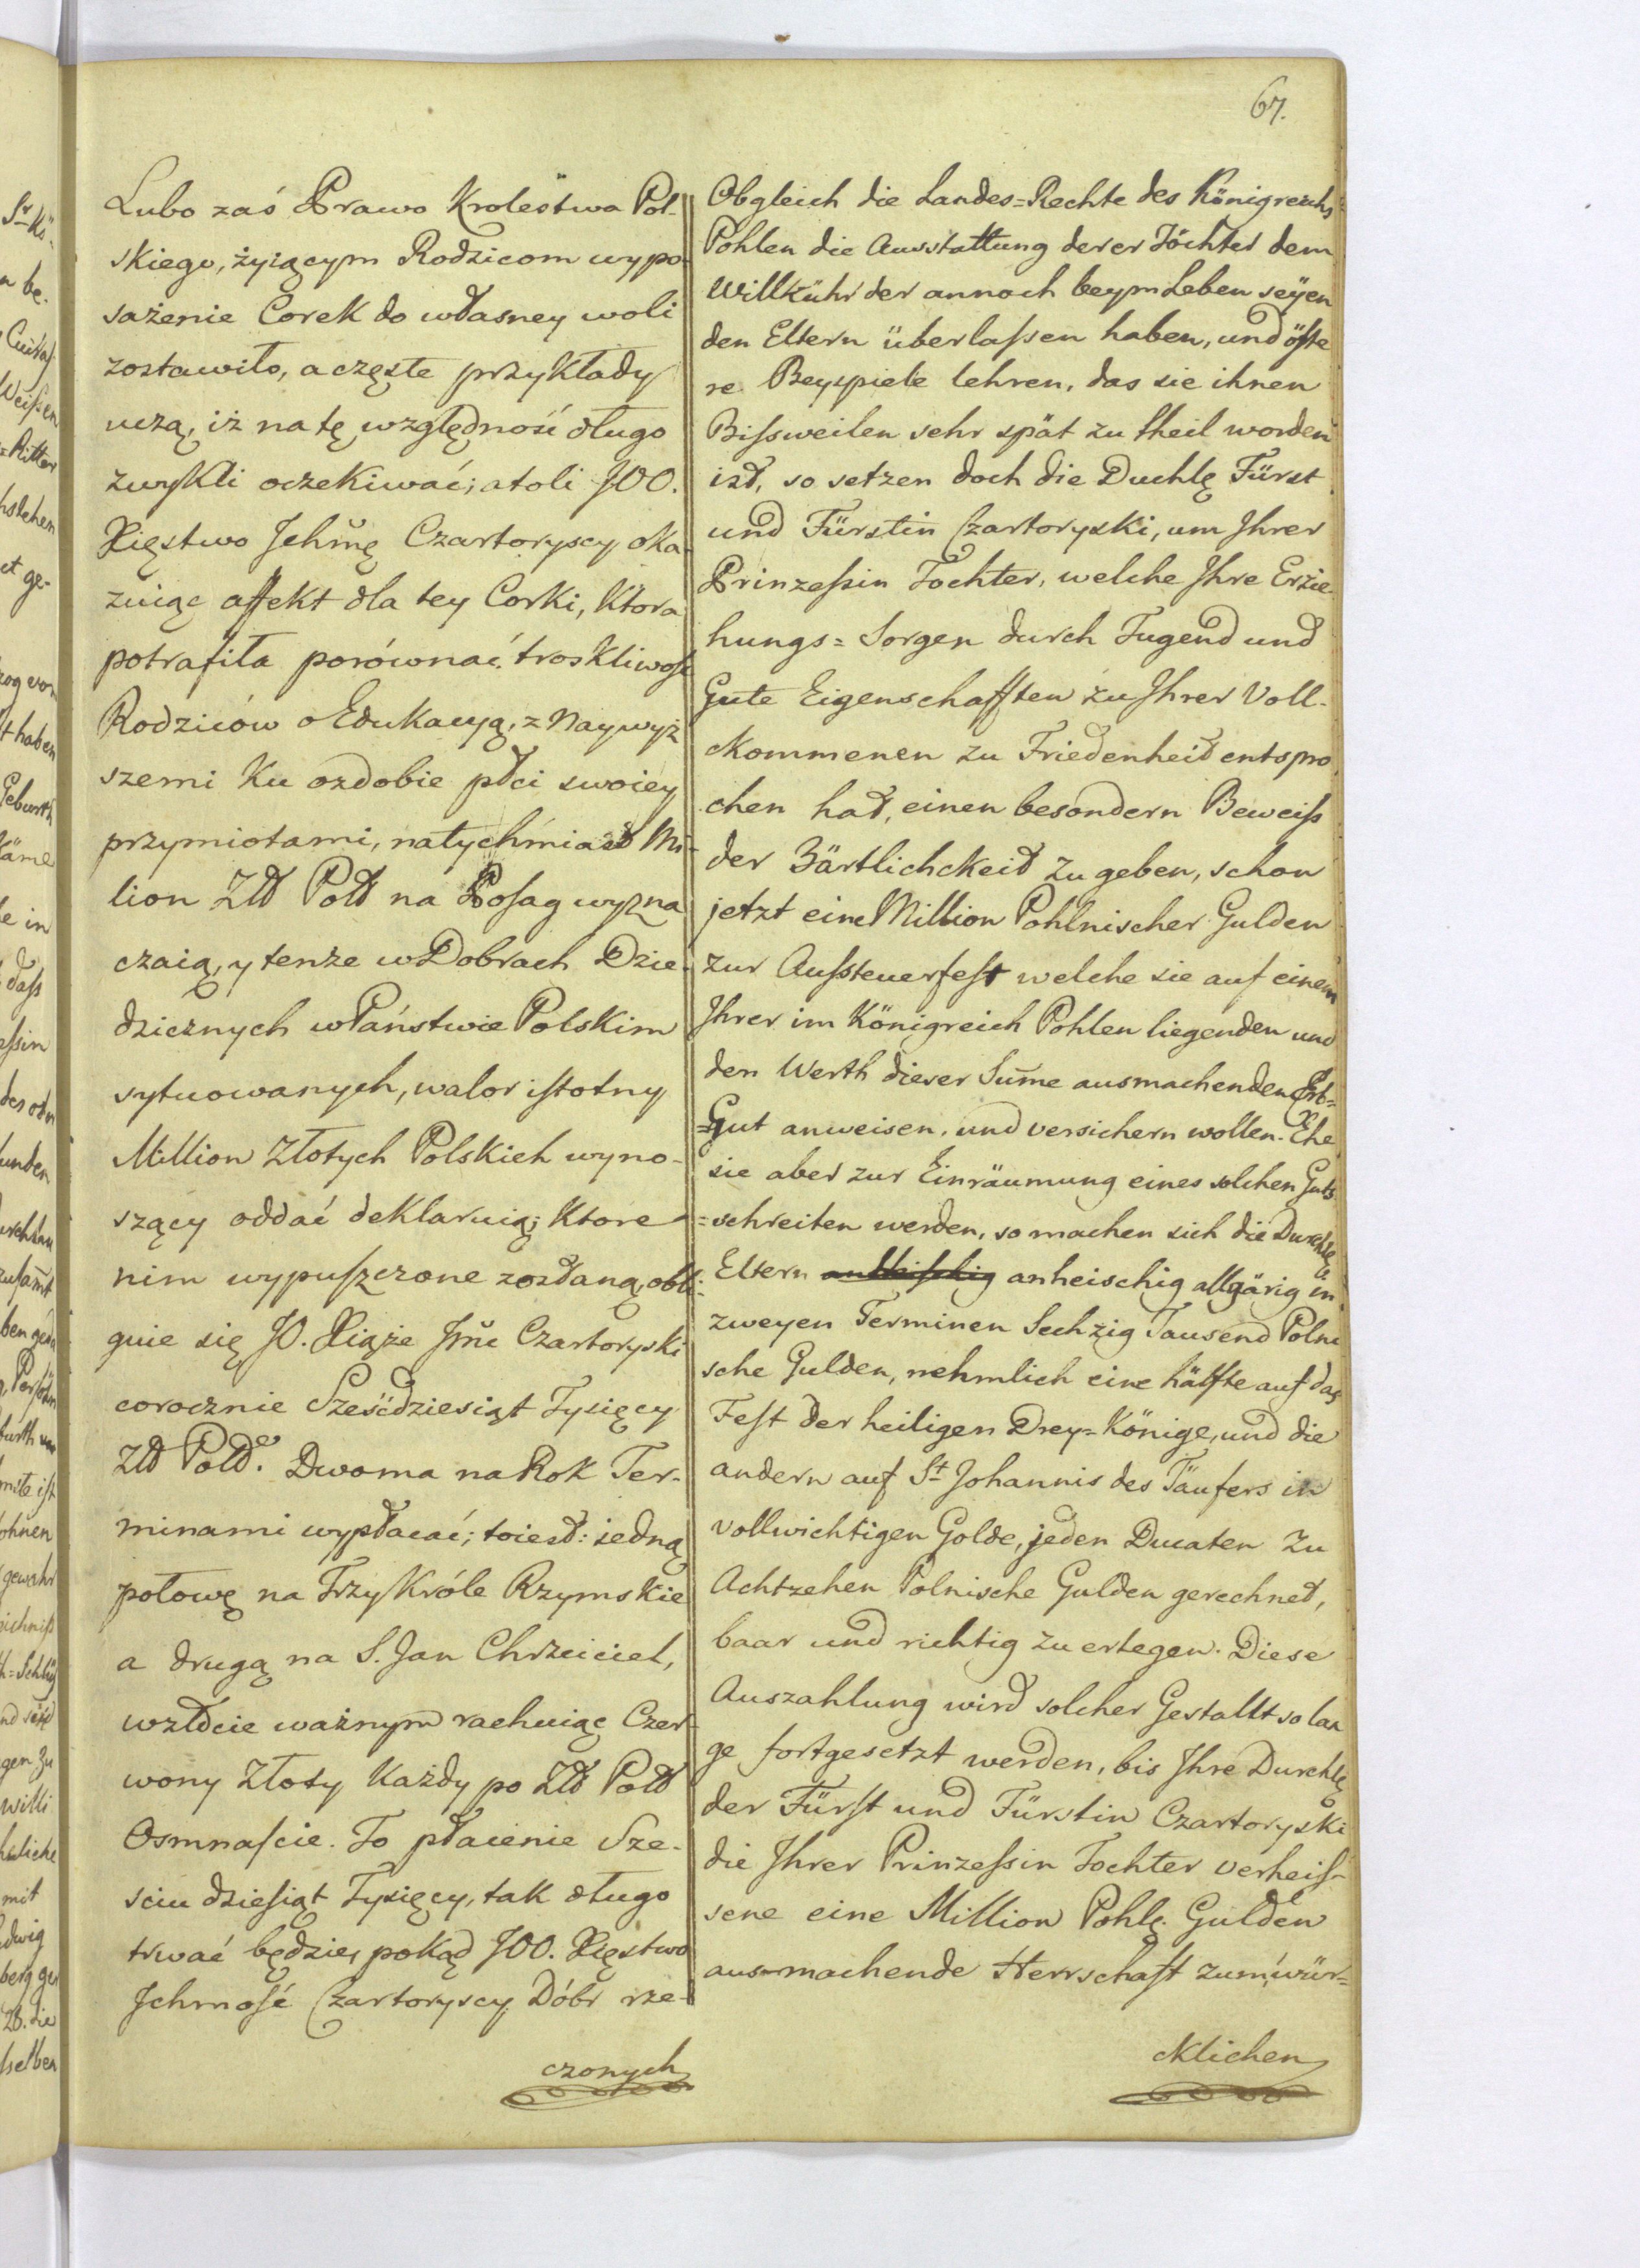 67.
Lubo zaś Prawo Krolestwa Pol-
skiego, żyiącym Rodzicom wypo-
sażenie Corek do własney woli
zostawiło, a częste przykłady
uczą, iż na tę względność długo
zwykli oczekiwać; atoli JOO.
Xięstwo Jchm̃ę Czartoryscy oka-
zuiąc affekt dla tey Corki, Ktora
potrafiła porównać troskliwość
Rodziców o Edukacyą, z Naywyż
szemi Ku ozdobie płci swoiey
przymiotami, natychmiast Mi-
lion Złł Poll na Posag wyzna
czaią, y tenże w Dobrach Dzie-
dzicznych w Państwie Polskim
sytuowanych, walor istotny
Million Złotych Polskich wyno-
szący oddać deklaruią; Ktore
nim wypuszczone zostaną, obli-
guie się JO. Xiąże Jm̃ć Czartoryski
corocznie Sześćdziesiąt Tysięcy
Złł Poll. Dwoma na Rok Ter-
minami wypłacać; toiest: iedną
połowę na Trzy Króle Rzymskie
a drugą na S. Jan Chrzciciel,
w złocie ważnym rachuiąc Czer-
wony Złoty Każdy po Złł Poll
Osmnaście. To płacenie Sze-
sciu dziesiąt Tysięcy, tak długo
trwać będzie, pokąd JOO. Xięstwo
Jchmość Czartoryscy Dóbr rze-
czonych
Obgleich die Landes=Rechte des Königreichs=
Pohlen die Ausstattung derer Töchter dem
Willkühr der annoch beym Leben seyen
den Eltern überlaßen haben, und öfte
re Beyspiele lehren, das sie ihnen
Bißweilen sehr spät zu theil worden
ist, so setzen doch die Duchlę Fürst
und Fürstin Czartoryski, um Jhrer
Prinzeßin Tochter, welche Jhre Erzie-
hungs= Sorgen durch Tugend und
Gute Eigenschafften zu Jhrer Voll-
ckommenen zu Friedenheit entspro
chen hat, einen besondern Beweiß
der Zärtlichckeit zu geben, schon
jetzt eine Million Pohlnischer Gulden
zur Außsteuer fest welche sie auf einem
Jhrer im Königreich Pohlen liegenden und
den Werth dieser Sum̃e ausmachenden Erb=
=Gut anweisen, und versichern wollen. Ehe
sie aber zur Einräumung eines solchen Guts
=schreiten werden, so machen sich die Durchlę
Eltern anheischig allgärig in
zweyen Terminen Sechzig Tausend Polni
sche Gulden, nehmlich eine hälfte auf das
Fest der heiligen Drey=Könige, und die
andern auf St Johannis des Täufers in
vollwichtigen Golde, jeden Ducaten zu
Achtzehen Polnische Gulden gerechnet,
baar und richtig zu erlegen. Diese
Auszahlung wird solcher Gestallt so lan
ge fortgesetzt werden, bis Jhre Durchlę
der Fürst und Fürstin Czartoryski
die Jhrer Prinzeßin Tochter verheiß-
sene eine Million Pohlę. Gulden
ausmachende Herrschaft zum wür=
cklichen